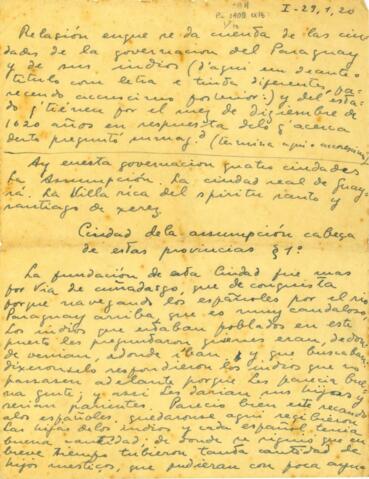 I-29,1,20
Relación enque se da cuenta de las ciu
dades de la governacion del Paraguay
y de sus indios (d'aqui em deante o
titulo com letra e tinta diferentes, pa-
recendo accrescimo posterior) y del esta
do q̃ tienen por el mes de diziembre de
1620 años en respuesta delo q̃ acerca
desto pregunto su mag.d (termina aqui o accrescimo)
Ay enesta governacion quatro ciudades
La Assumpcion. La ciudad real de Guay
rá. La Villa rica del spiritu santo y
santiago de xerez.
Ciudad dela assumpción cabeça
de estas provincias § 1º
La fundación de esta Ciudad fue mas
por via de cuñadazgo, que de conquista
porque navegando los españoles por el rio
Paraguay arriba, que es muy caudaloso,
Los indios que estaban poblados en este
puerto les preguntaron quienes eran, de don
de venian, adonde iban, y que buscaban
dixeronselo respondieron los indios que no
passasen adelante porque les parecia bue
na gente, y assi les darian sus hijas y
serian parientes. Parecio bien este recaudo
alos españoles quedaronse aqui recibieron
las hijas delos indios y cada español tenia
buena cantidad, de donde se siguio que en
breve tiempo tubieron tanta cantidad de
hijos mestiços, que pudieran con poca ayuda